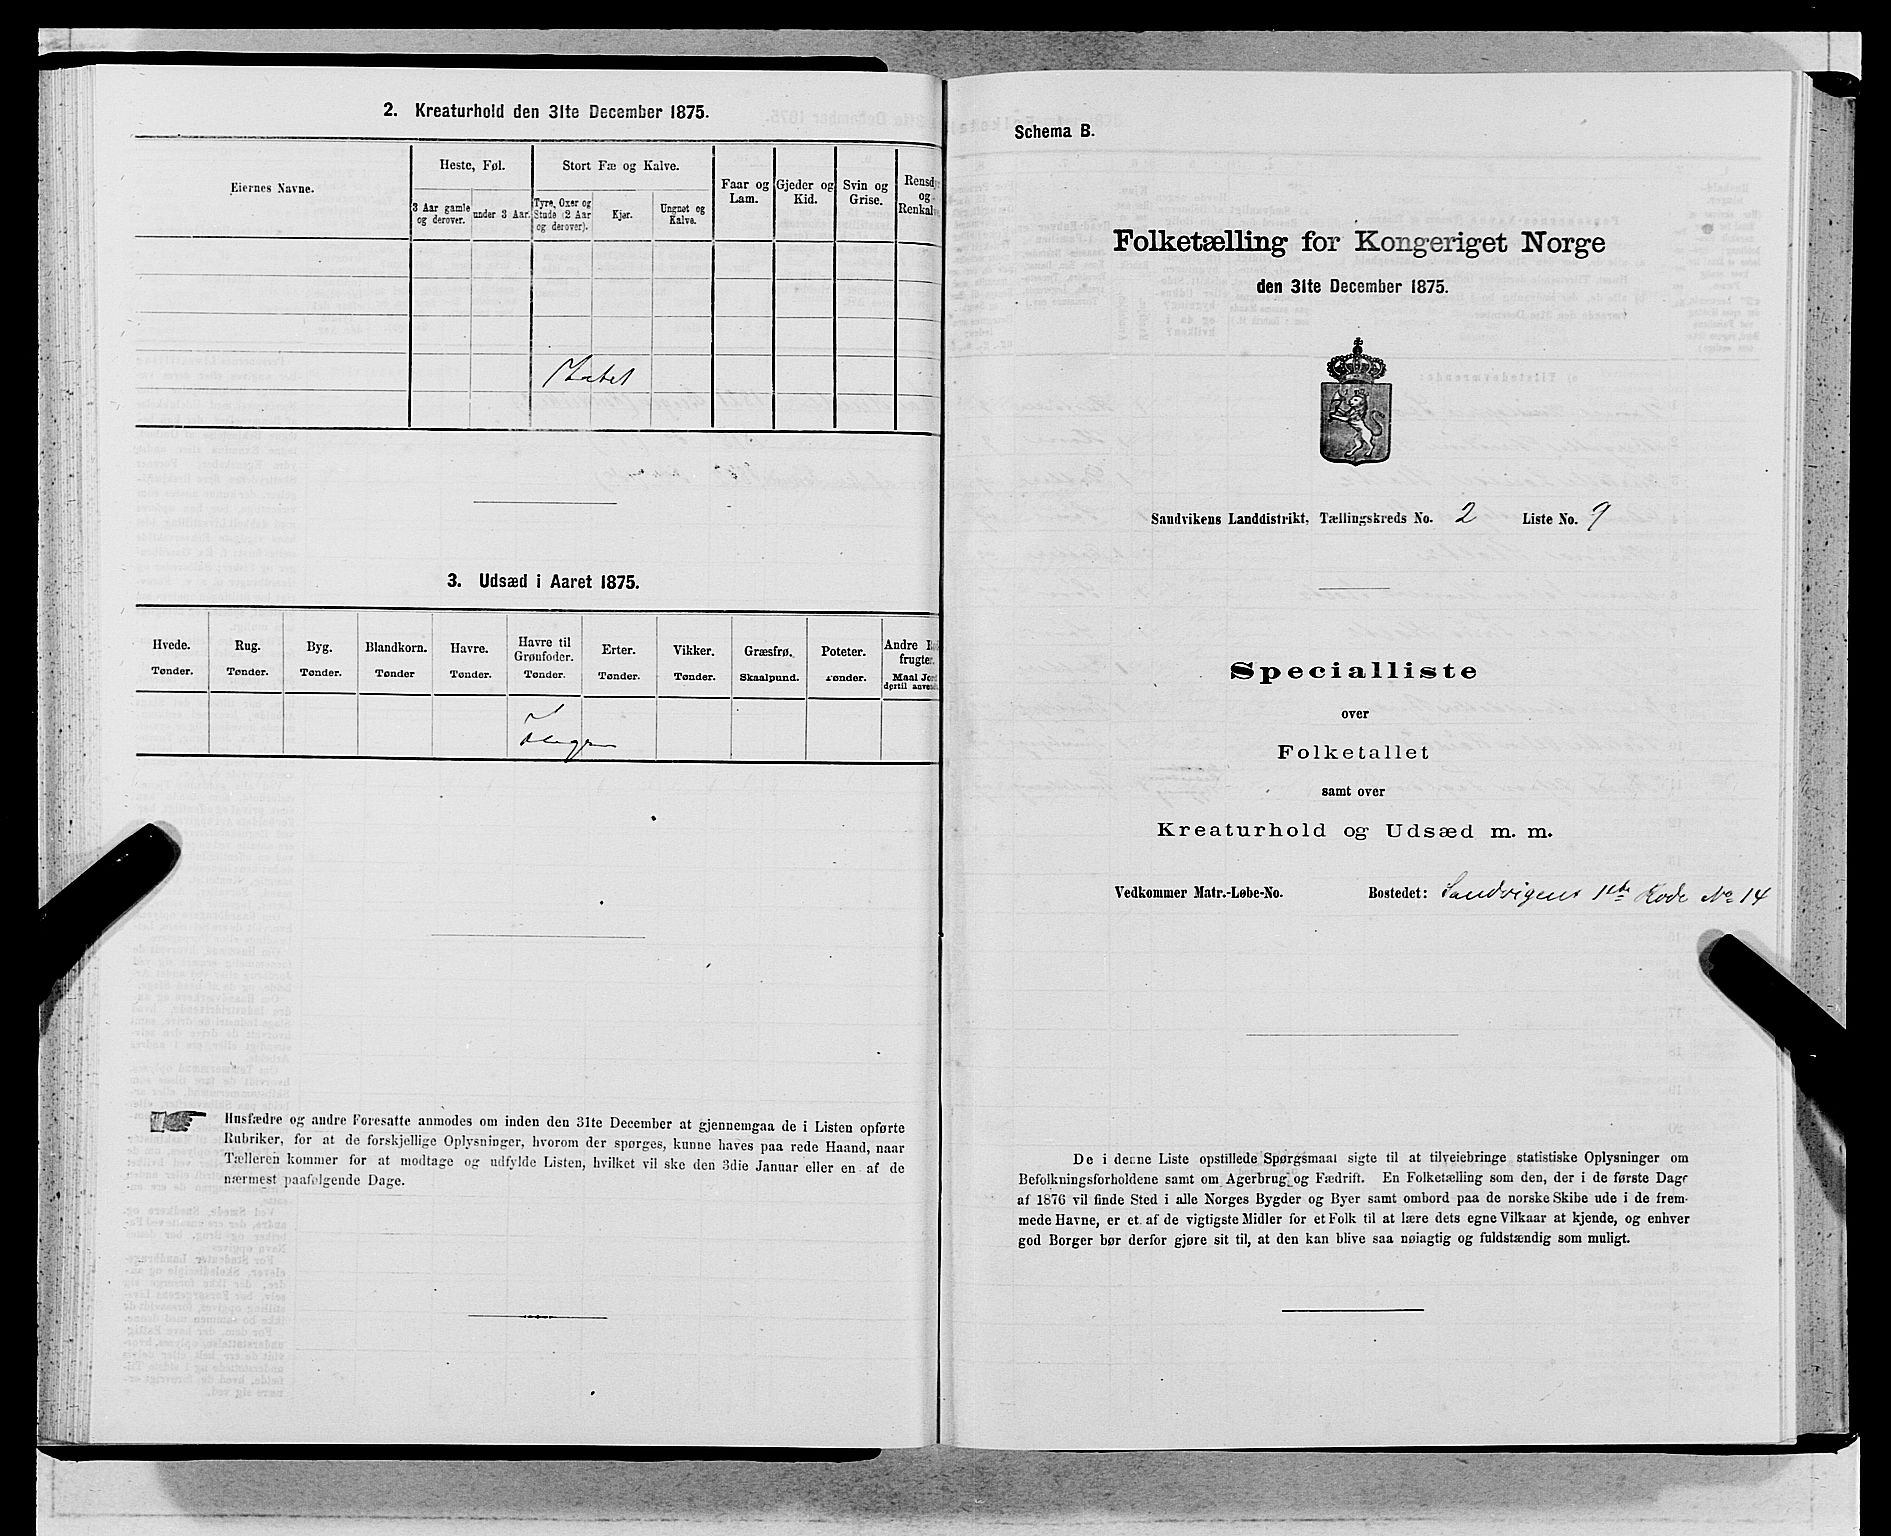 2. Kreaturhold den 31te December 1875.
Eiernes Navne.
Heste, Føl.
Stort Fæ og Kalve.
Faar og Lam.
Gjeder og Kid.
Svin og Grise.
Rensdyr og Renkalve
3 Aar gamle og derover.
under 3 Aar.
Tyre, Oxer og Stude (2 Aar og derover).
Kjør.
Ungnøt og Kalve.
3. Udsæd i Aaret 1875.
Hvede. Tønder.
Rug. Tønder.
Byg. Tønder.
Blandkorn. Tønder
Havre. Tønder.
Havre til Grønfoder. Tønder.
Erter. Tønder.
Vikker. Tønder.
Græsfrø. Skaalpund.
Poteter. Tønder.
Andre frugter. Maal Jord dertil anvendt
Ingen
Husfædre og andre Foresatte anmodes om inden den 31te December at gjennemgaa de i Listen opførte
Rubriker, for at de forskjellige Oplysninger, hvorom der spørges, kunne haves paa rede Haand, naar
Tælleren kommer for at modtage og udfylde Listen, hvilket vil ske den 3die Januar eller en af de
nærmest paafølgende Dage.
Schema B.
Folketælling for Kongeriget Norge
den 31te December 1875.
Sandvikens Landdistrikt, Tællingskreds No. 2 Liste No. 9
Specialliste
over
Folketallet
samt over
Kreaturhold og Udsæd m. m.
Vedkommer Matr.-Løbe-No. Bostedet: Sandvigens 1ste Rode No 14
De i denne Liste opstillede Spørgsmaal sigte til at tilveiebringe statistiske Oplysninger om
Befolkningsforholdene samt om Agerbrug og Fædrift. En Folketælling som den, der i de første Dage
af 1876 vil finde Sted i alle Norges Bygder og Byer samt ombord paa de norske Skibe ude i de frem-
mede Havne, er et af de vigtigste Midler for et Folk til at lære dets egne Vilkaar at kjende, og enhver
god Borger bør derfor gjøre sit til, at den kan blive saa nøiagtig og fuldstændig som muligt.